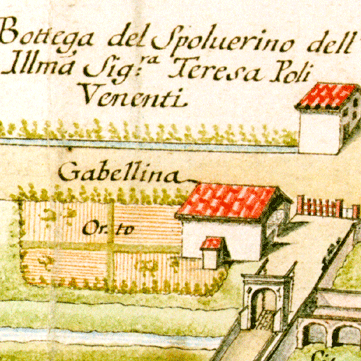 Bottega del Spoluerino dell
Illma Sig.ra Teresa Poli
Venenti
Gabellina
Orto